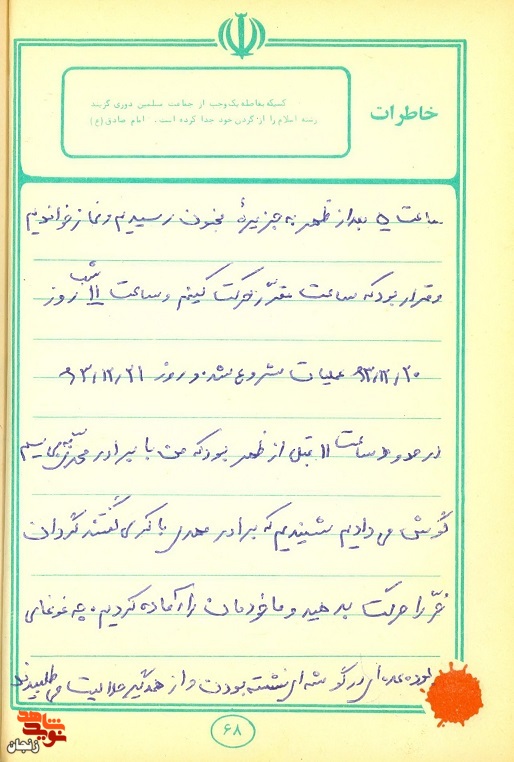 خاطرات
کسیکه بفاصله یک وجب از جماعت مسلمین دوری گزیند
رشته اسلام را از گردن خود جدا کرده است. امام صادق (ع)
ساعت ۵ بعد از ظهر به جزیرهٔ مجنون رسیدیم و نماز خواندیم
و قرار بود که ساعت مقرّر حرکت کنیم و ساعت ۱۱ شب روز
۶۳/۱۲/۲۰ عملیات شروع شد. و روز ۶۳/۱۲/۲۱
در حدود ساعت ۱۱ قبل از ظهر بود که من با برادر محمدی به بی‌سیم
گوش می دادیم شنیدیم که برادر مهدی باکری گفتند گردان
حرّ را حرکت بدهید و ما خودمان را آماده کردیم. چه غوغای
بود. عده‌ای در گوشه‌ای نشسته بودند و از همدیگر حلالیت می طلبیدند
۶۸
نوید شاهد
زنجان